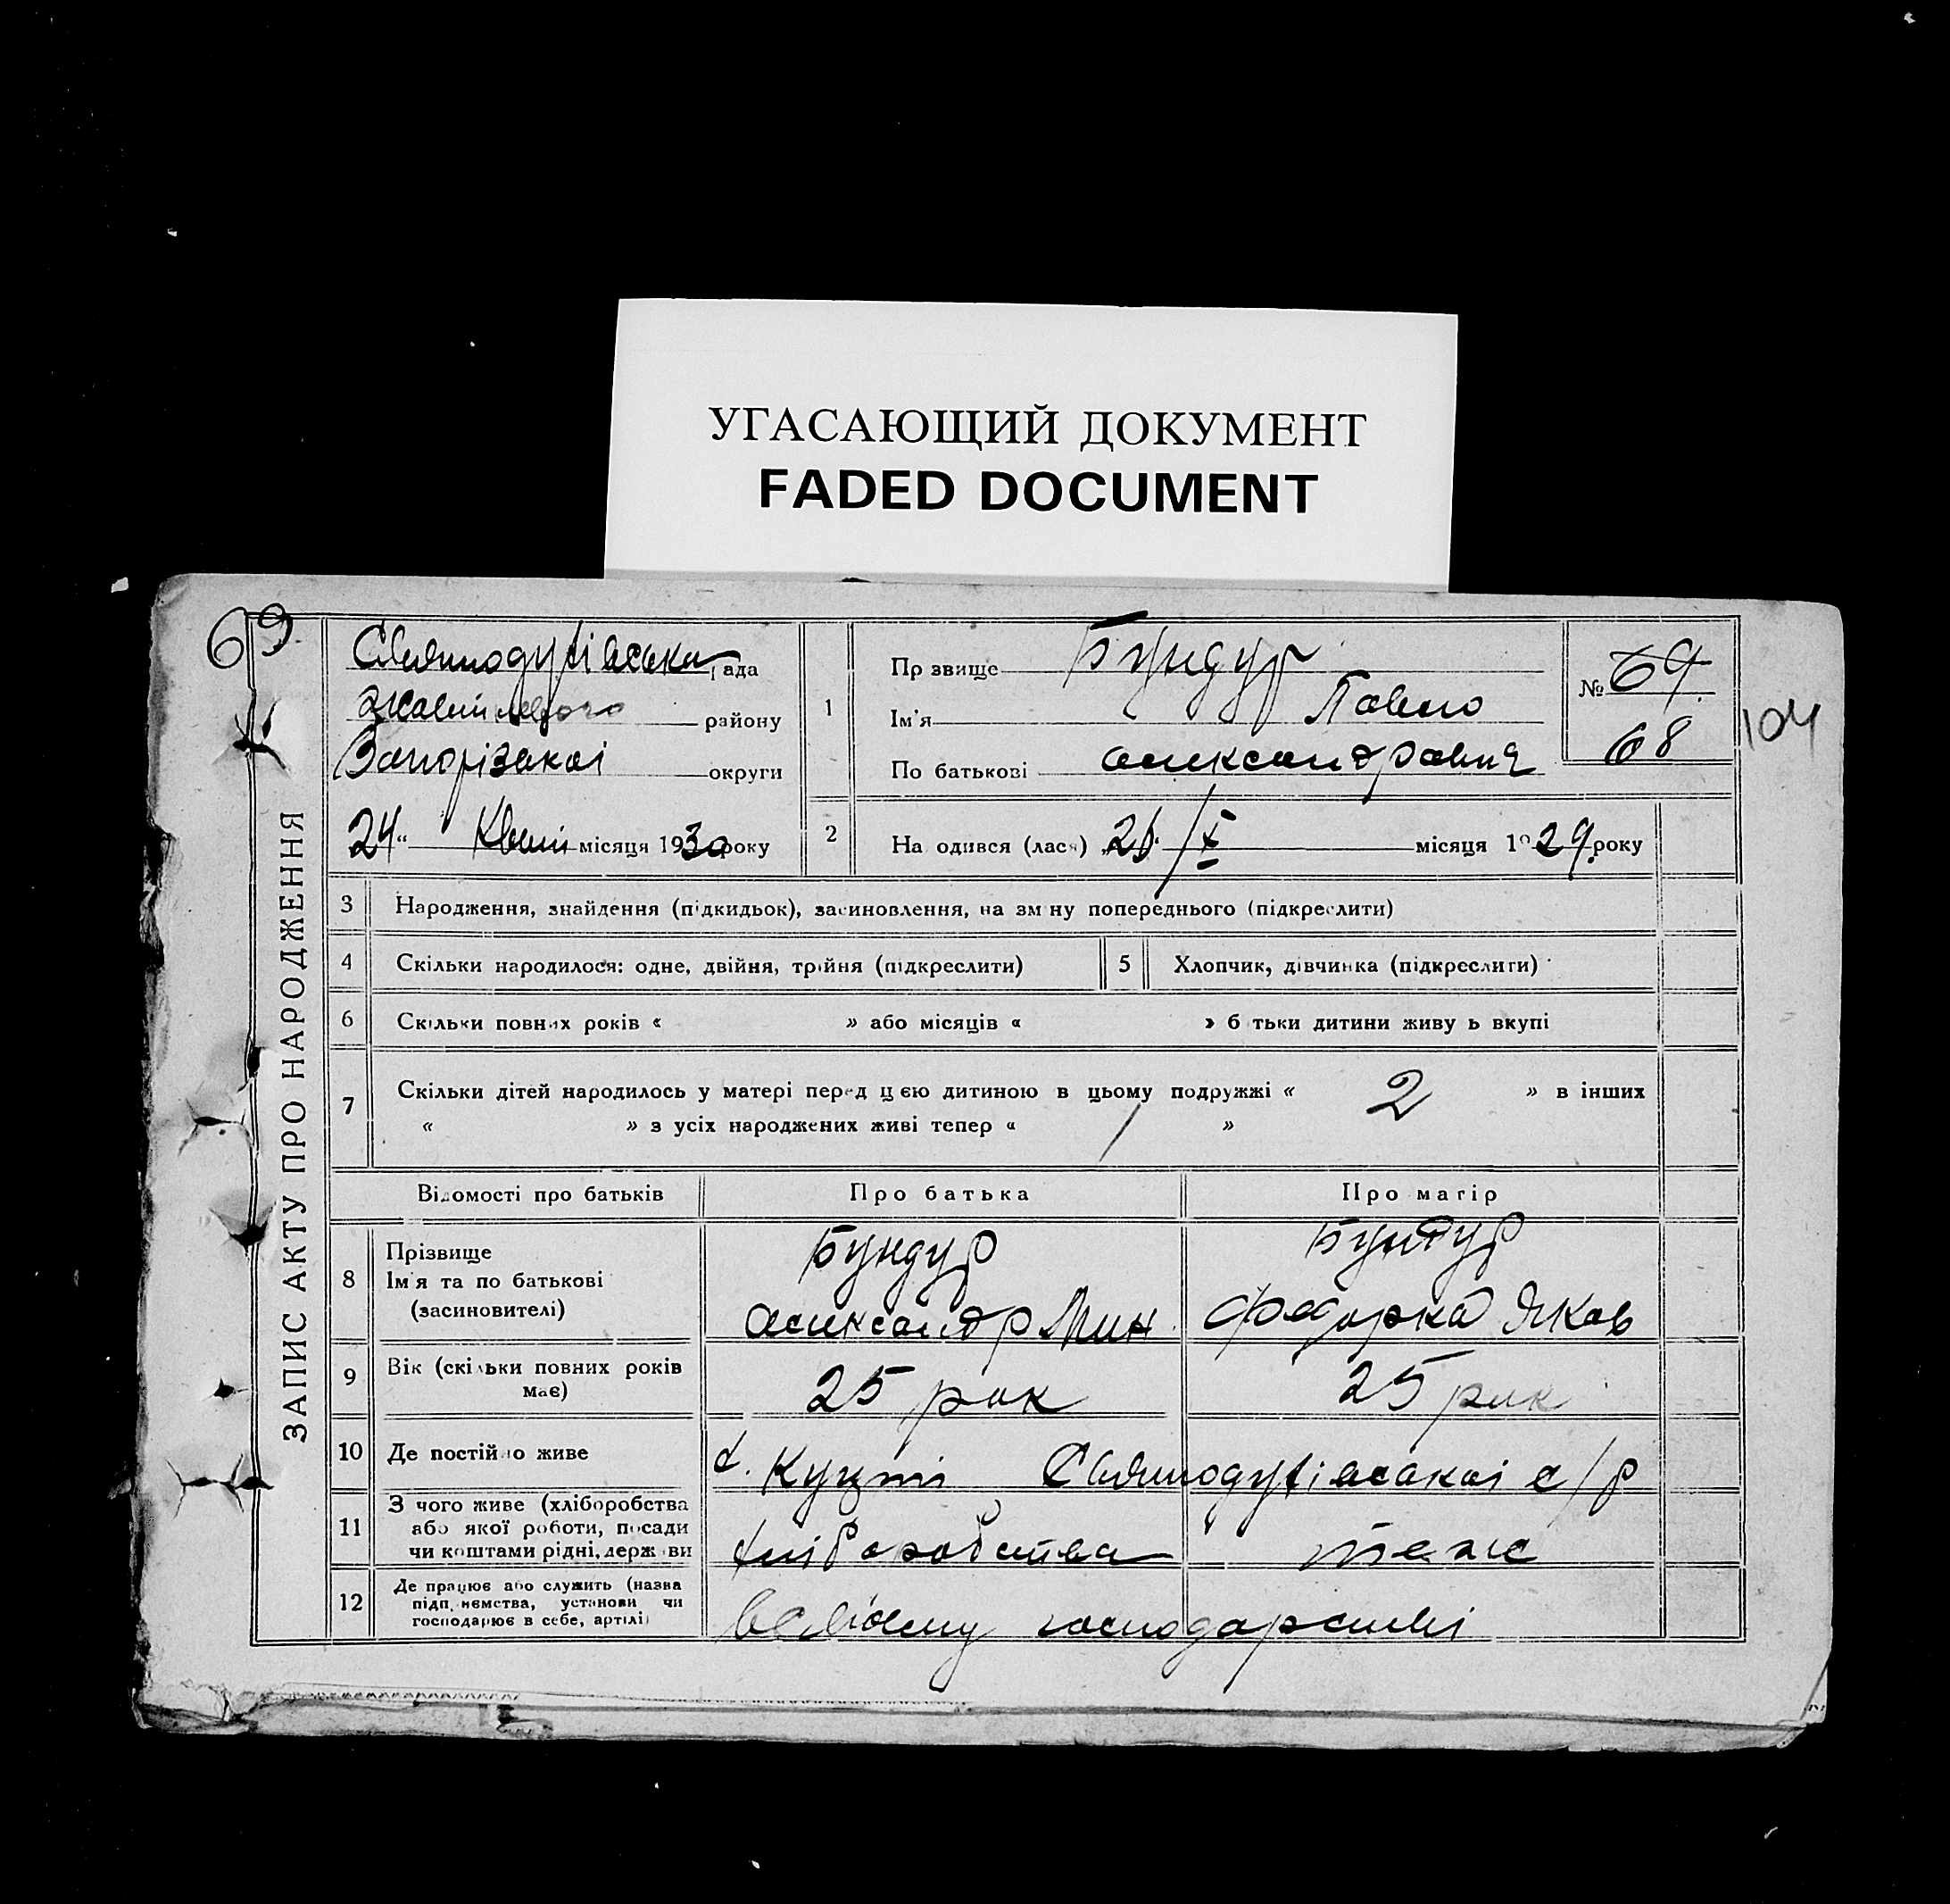 УГАСАЮЩИЙ ДОКУМЕНТ
FADED DOCUMENT
69
ЗАПИС АКТУ ПРО НАРОДЖЕННЯ
Святодухівська рада
Жовтневого району
Запорізької округи
24 " Квіт місяця 1930 року
1
Пр звище Бундур
Ім'я Павло
По батькові Олександрович
№ 69
68
104
2
На одився (лася) місяця 1929 року
3 Народження, знайдення (підкидьок), засиновлення, на зм ну попереднього (підкреслити)
4 Скільки народилося: одне, двійня, трійня (підкреслити)
5 Хлопчик, дівчинка (підкреслити)
6 Скільки повних років « » або місяців « » б тьки дитини живу ь вкупі
7 Скільки дітей народилось у матері перед цією дитиною в цьому подружжі « 2 » в інших
« » з усіх народжених живі тепер « / »
Відомості про батьків Про батька Про матір
8 Прізвище
Ім'я та по батькові
(засиновителі)
Бундур
Олександр Мин
Бундур
Федорка Яков
9 Вік (скільки повних років
має)
25 рок
25 рок
10 Де постійно живе
с. Куцті Святодухівської с/р
11 З чого живе (хліборобства
або якої роботи, посади
чи коштами рідні, держ ви
хліборобства
теж
12 Де працює або служить (назва
підп иємства, установи чи
господарює в себе, артілі)
в своєму господарстві